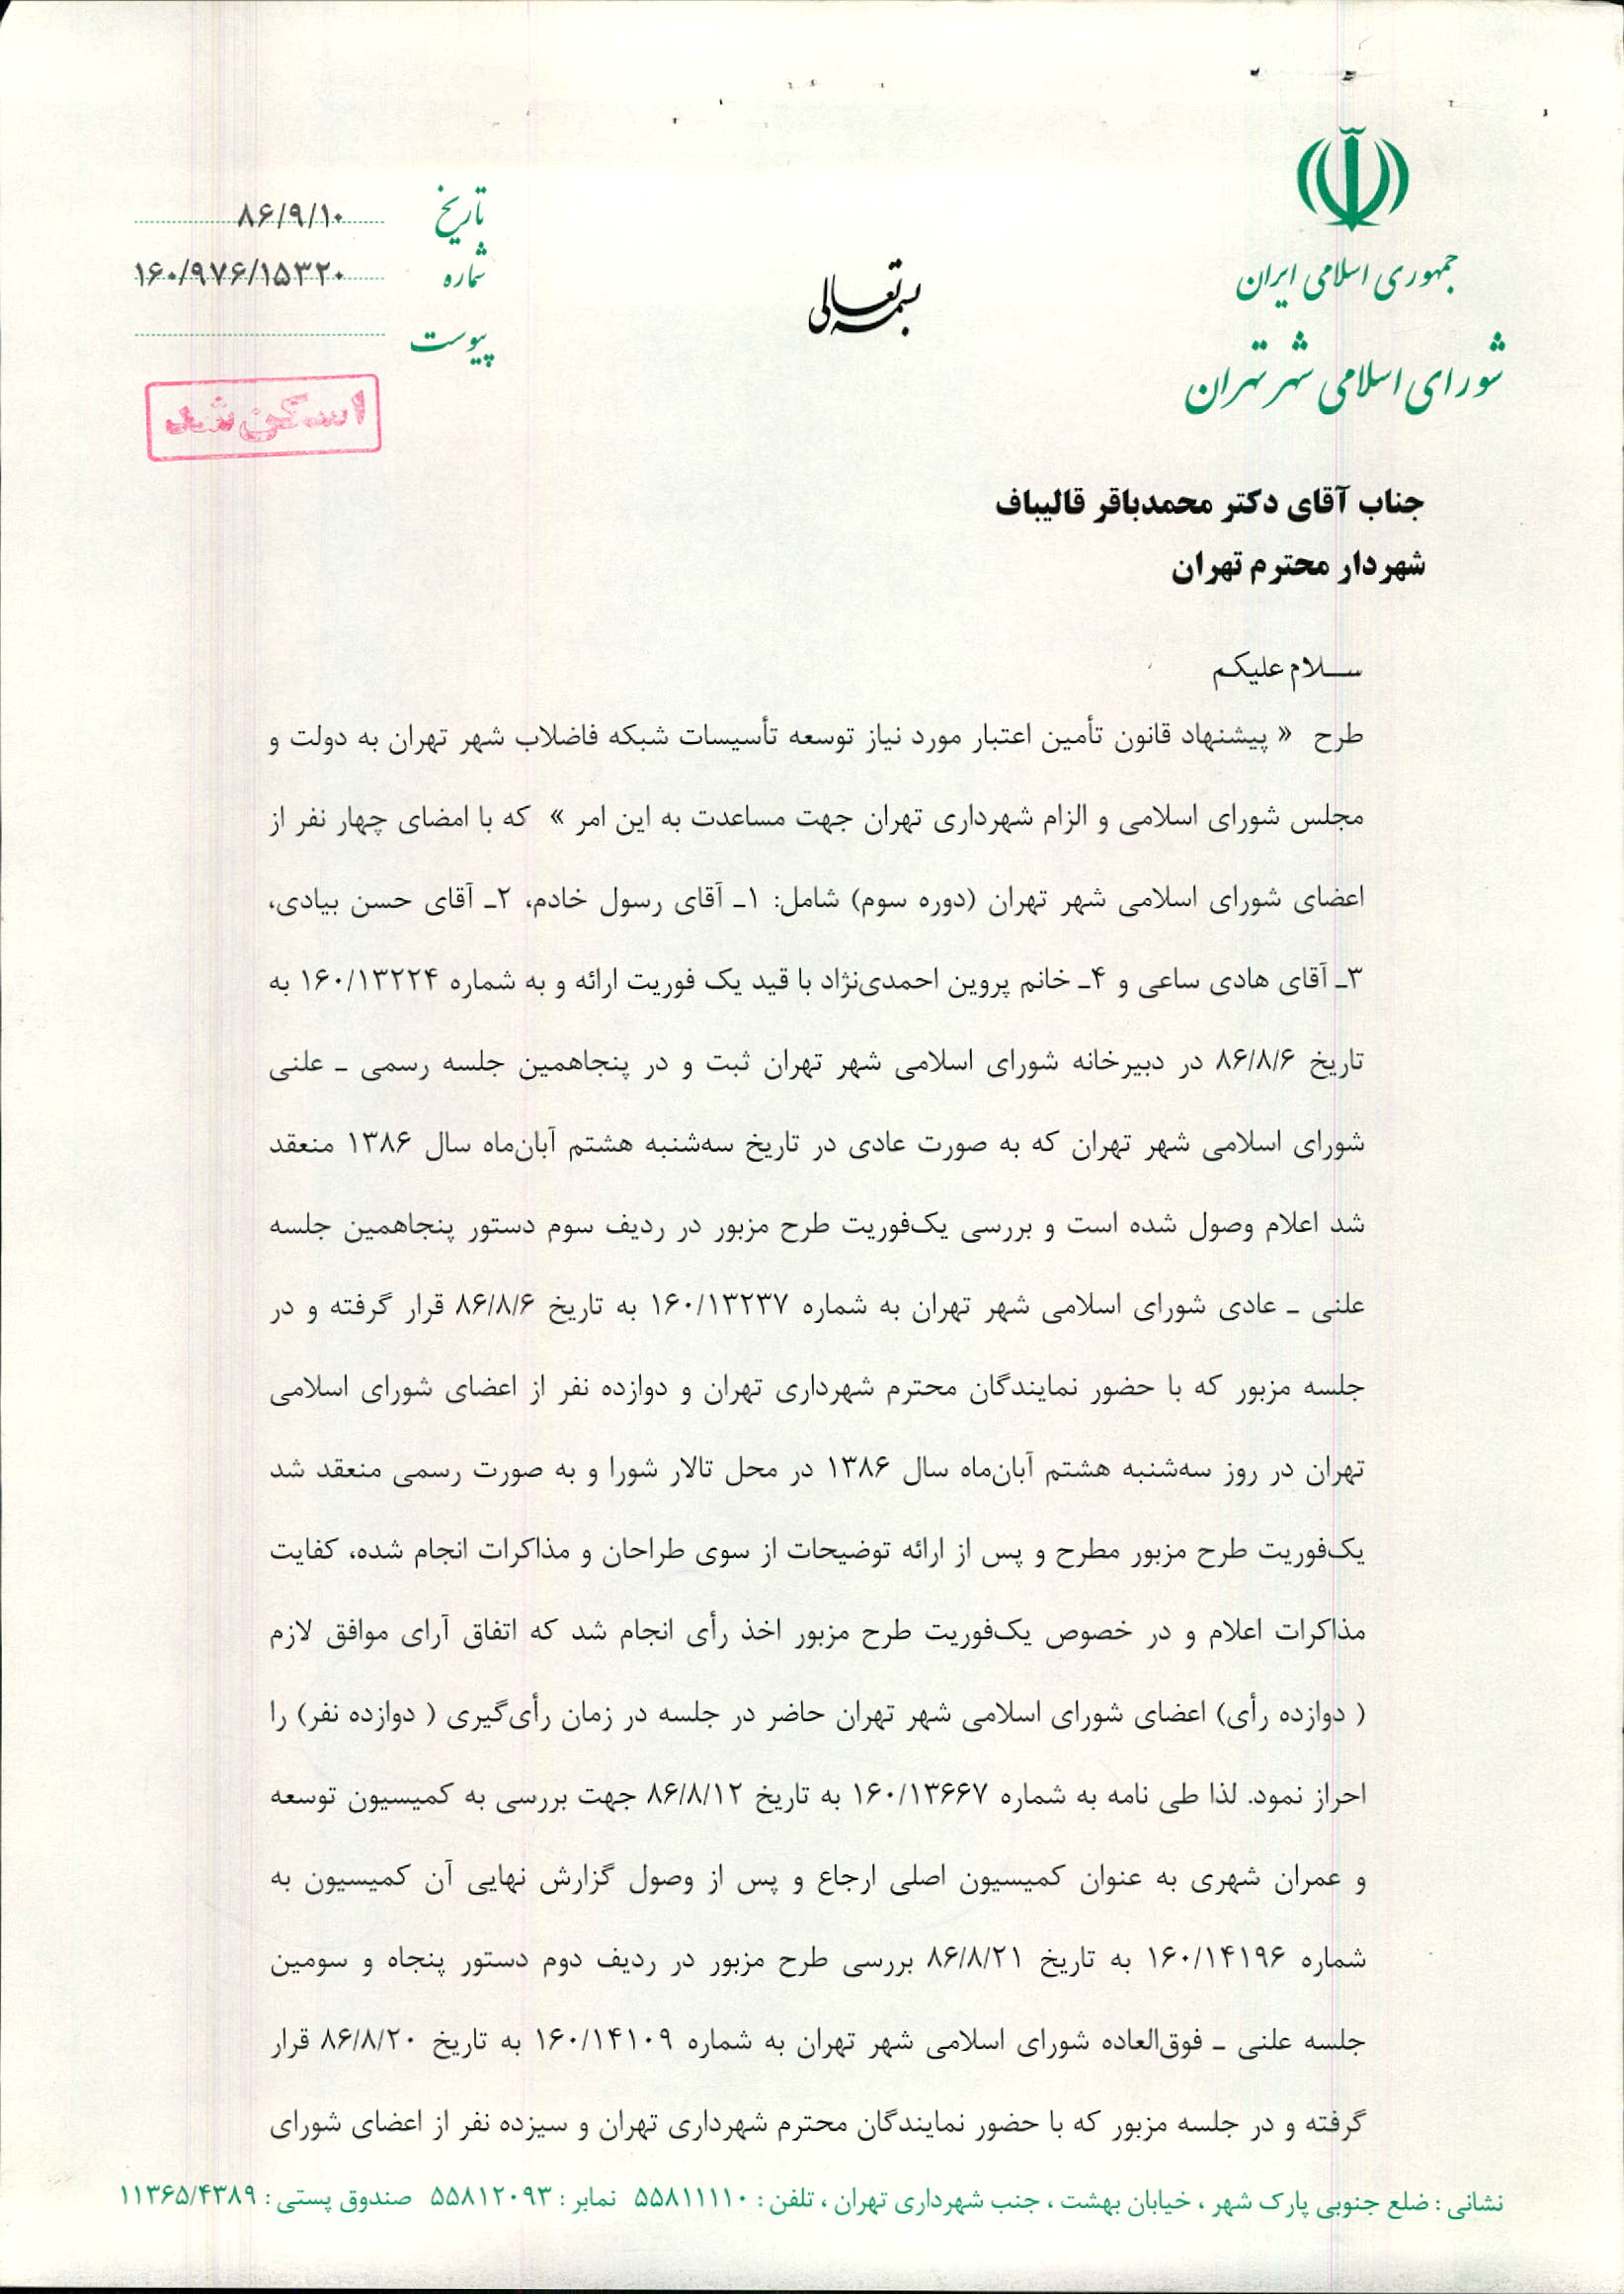 جمهوری اسلامی ایران
شورای اسلامی شهر تهران
بسمه تعالی
تاریخ ۸۶/۹/۱۰
شماره ۱۶۰/۹۷۶/۱۵۳۲۰
پیوست
اسکن شد
جناب آقای دکتر محمدباقر قالیباف
شهردار محترم تهران
سـلام علیکم
طرح « پیشنهاد قانون تأمین اعتبار مورد نیاز توسعه تأسیسات شبکه فاضلاب شهر تهران به دولت و
مجلس شورای اسلامی و الزام شهرداری تهران جهت مساعدت به این امر » که با امضای چهار نفر از
اعضای شورای اسلامی شهر تهران (دوره سوم) شامل: ۱ـ آقای رسول خادم، ۲ـ آقای حسن بیادی،
۳ـ آقای هادی ساعی و ۴ـ خانم پروین احمدی‌نژاد با قید یک فوریت ارائه و به شماره ۱۶۰/۱۳۲۲۴ به
تاریخ ۸۶/۸/۶ در دبیرخانه شورای اسلامی شهر تهران ثبت و در پنجاهمین جلسه رسمی ـ علنی
شورای اسلامی شهر تهران که به صورت عادی در تاریخ سه‌شنبه هشتم آبان‌ماه سال ۱۳۸۶ منعقد
شد اعلام وصول شده است و بررسی یک‌فوریت طرح مزبور در ردیف سوم دستور پنجاهمین جلسه
علنی ـ عادی شورای اسلامی شهر تهران به شماره ۱۶۰/۱۳۲۳۷ به تاریخ ۸۶/۸/۶ قرار گرفته و در
جلسه مزبور که با حضور نمایندگان محترم شهرداری تهران و دوازده نفر از اعضای شورای اسلامی
تهران در روز سه‌شنبه هشتم آبان‌ماه سال ۱۳۸۶ در محل تالار شورا و به صورت رسمی منعقد شد
یک‌فوریت طرح مزبور مطرح و پس از ارائه توضیحات از سوی طراحان و مذاکرات انجام شده، کفایت
مذاکرات اعلام و در خصوص یک‌فوریت طرح مزبور اخذ رأی انجام شد که اتفاق آرای موافق لازم
( دوازده رأی) اعضای شورای اسلامی شهر تهران حاضر در جلسه در زمان رأی‌گیری ( دوازده نفر) را
احراز نمود. لذا طی نامه به شماره ۱۶۰/۱۳۶۶۷ به تاریخ ۸۶/۸/۱۲ جهت بررسی به کمیسیون توسعه
و عمران شهری به عنوان کمیسیون اصلی ارجاع و پس از وصول گزارش نهایی آن کمیسیون به
شماره ۱۶۰/۱۴۱۹۶ به تاریخ ۸۶/۸/۲۱ بررسی طرح مزبور در ردیف دوم دستور پنجاه و سومین
جلسه علنی ـ فوق‌العاده شورای اسلامی شهر تهران به شماره ۱۶۰/۱۴۱۰۹ به تاریخ ۸۶/۸/۲۰ قرار
گرفته و در جلسه مزبور که با حضور نمایندگان محترم شهرداری تهران و سیزده نفر از اعضای شورای
نشانی : ضلع جنوبی پارک شهر ، خیابان بهشت ، جنب شهرداری تهران ، تلفن : ۵۵۸۱۱۱۱۰ نمابر : ۵۵۸۱۲۰۹۳ صندوق پستی : ۱۱۳۶۵/۴۳۸۹